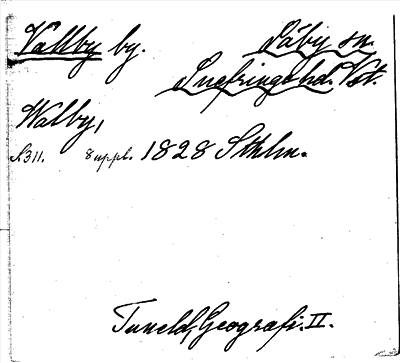 Vallby by. Säby sn.
Snefringe hd. Vst.
Walby,
S.311. 8 uppl. 1828 Sthlm.
Tuneld, Geografi. II.